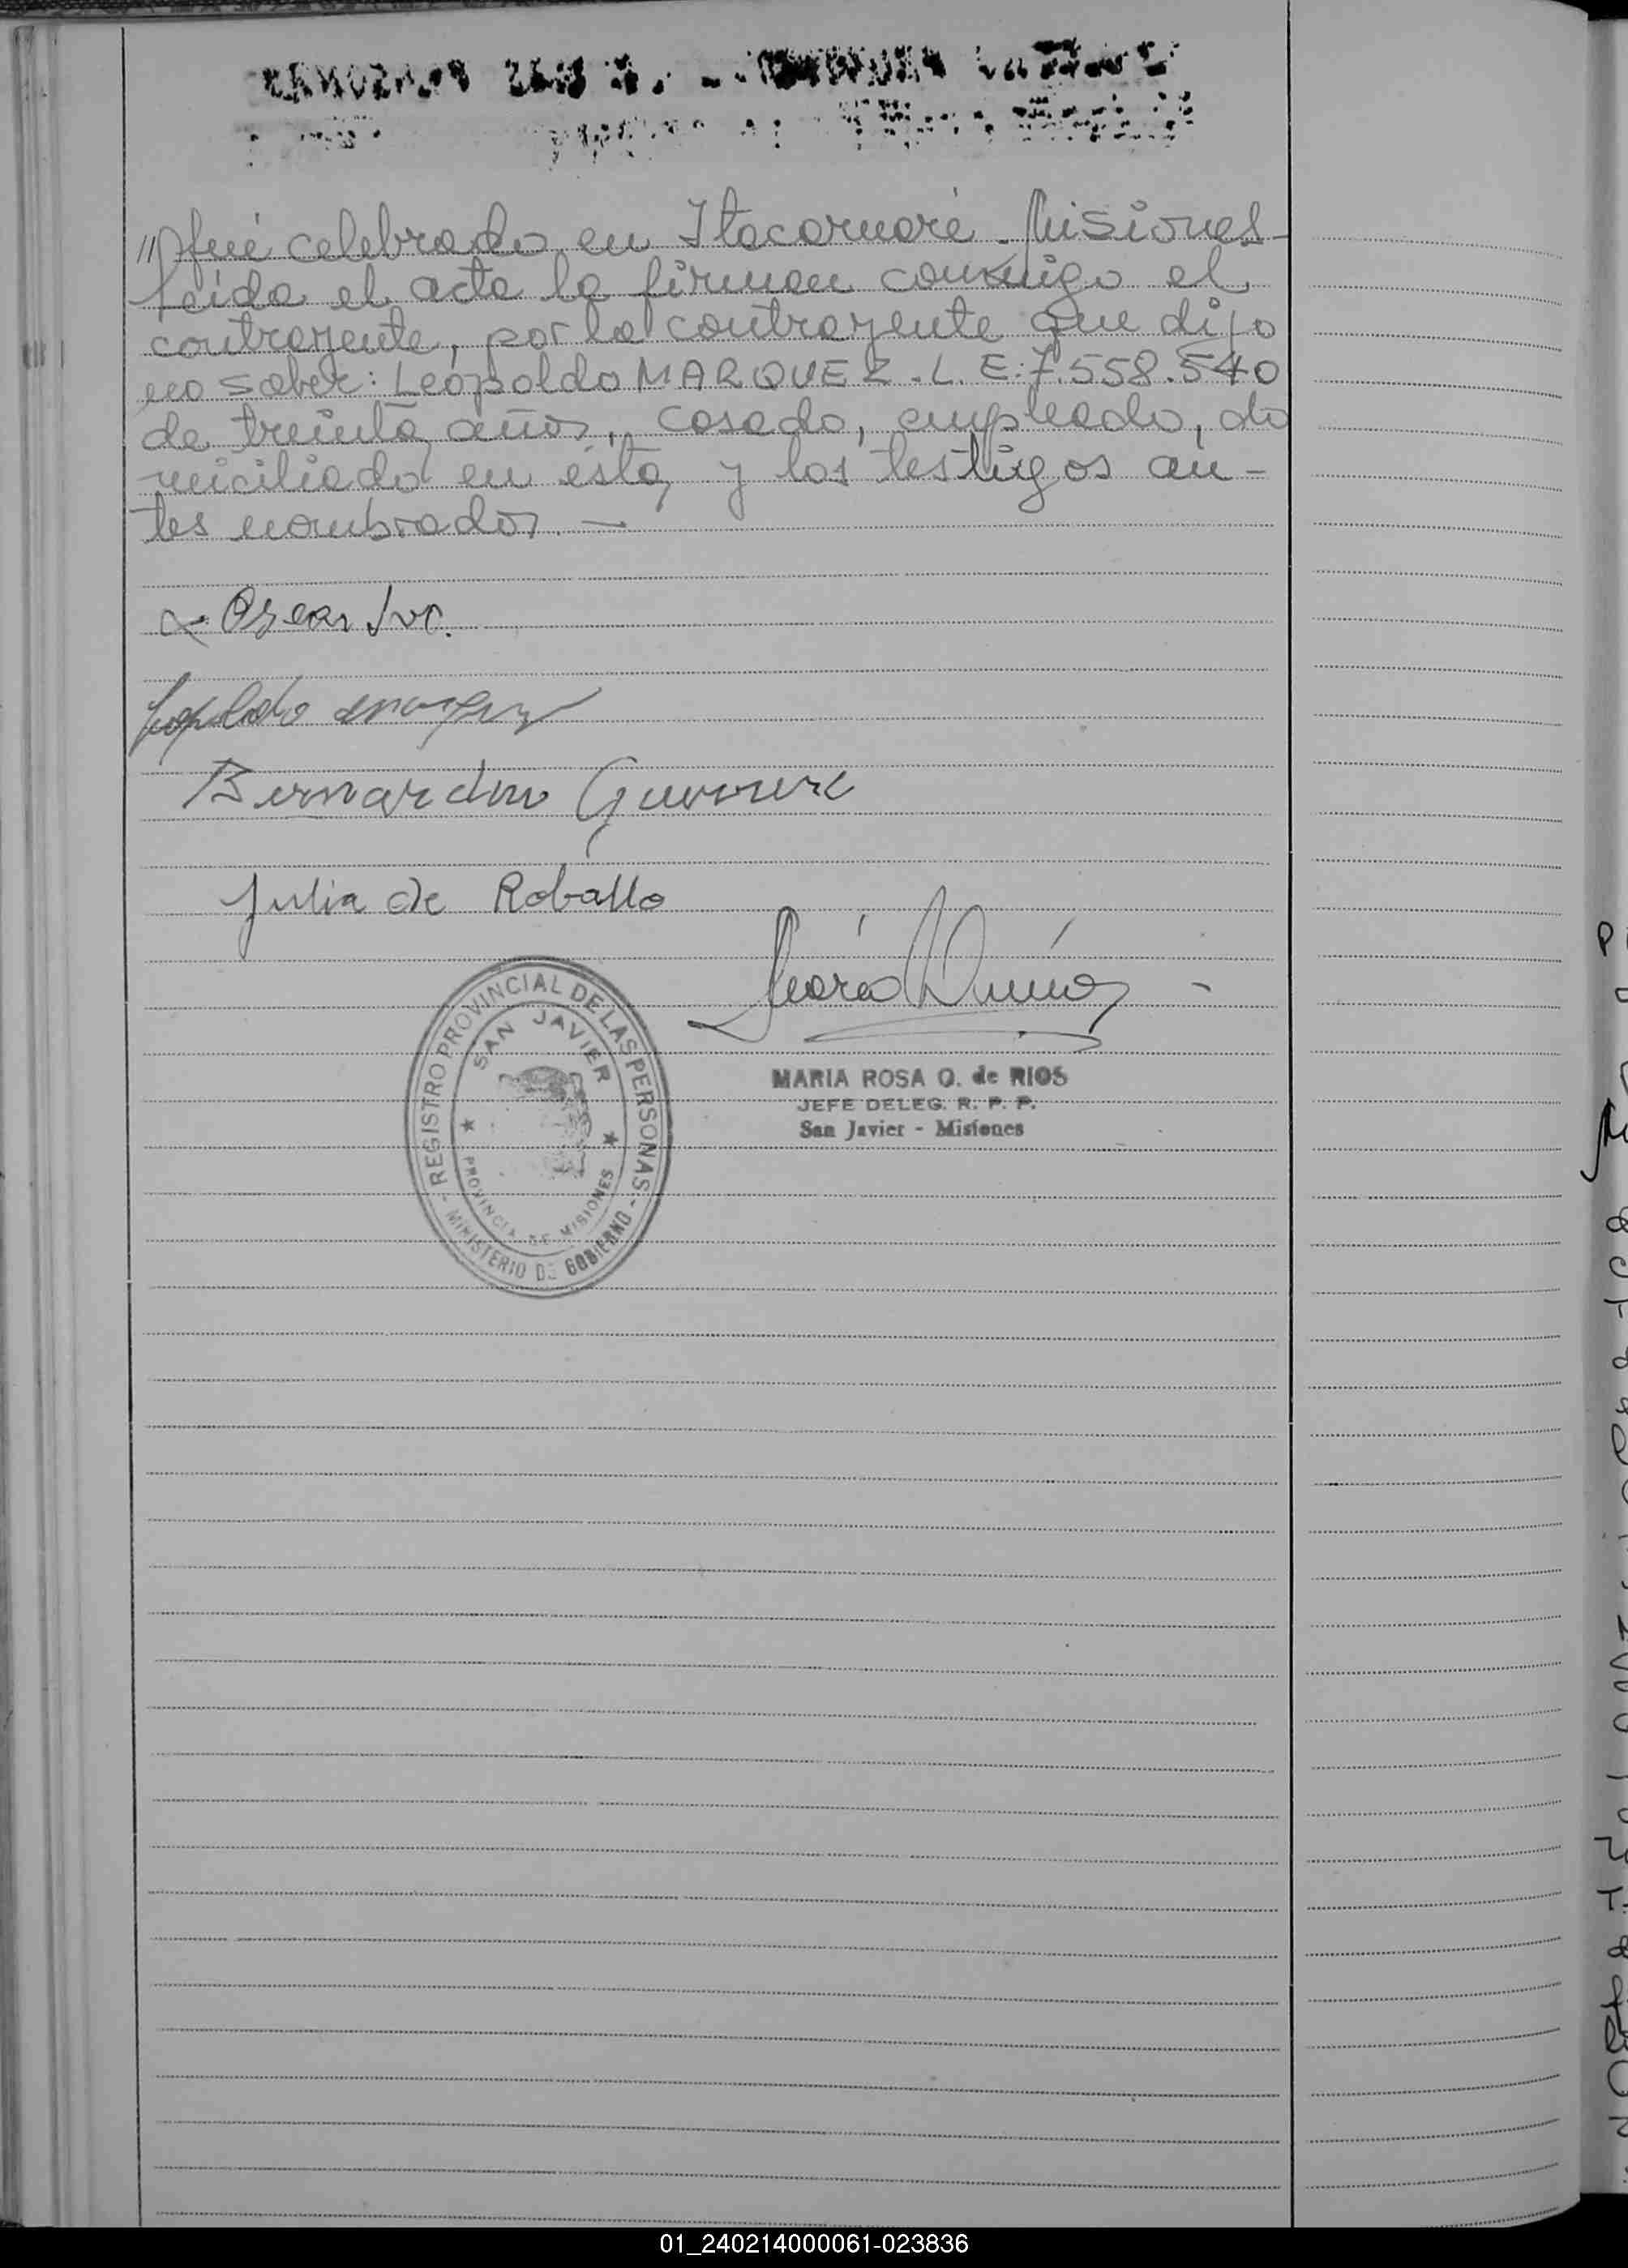 //fué celebrado en Itacaruaré - Misiones -
Leida el acta la firman conmigo el
contrayente, por la contrayente que dijo
no saber: Leopoldo MARQUEZ. L. E: 7.558.540
de treinta años, casado, empleado, do
miciliado en ésta, y los testigos an-
tes nombrados. -
x Oscar
Leopoldo
Bernardino
Julia de Roballo
REGISTRO PROVINCIAL DE LAS PERSONAS
SAN JAVIER
PROVINCIA DE MISIONES
- MINISTERIO DE GOBIERNO -
MARIA ROSA O. de RIOS
JEFE DELEG. R. P. P.
San Javier - Misiones
01_240214000061-023836